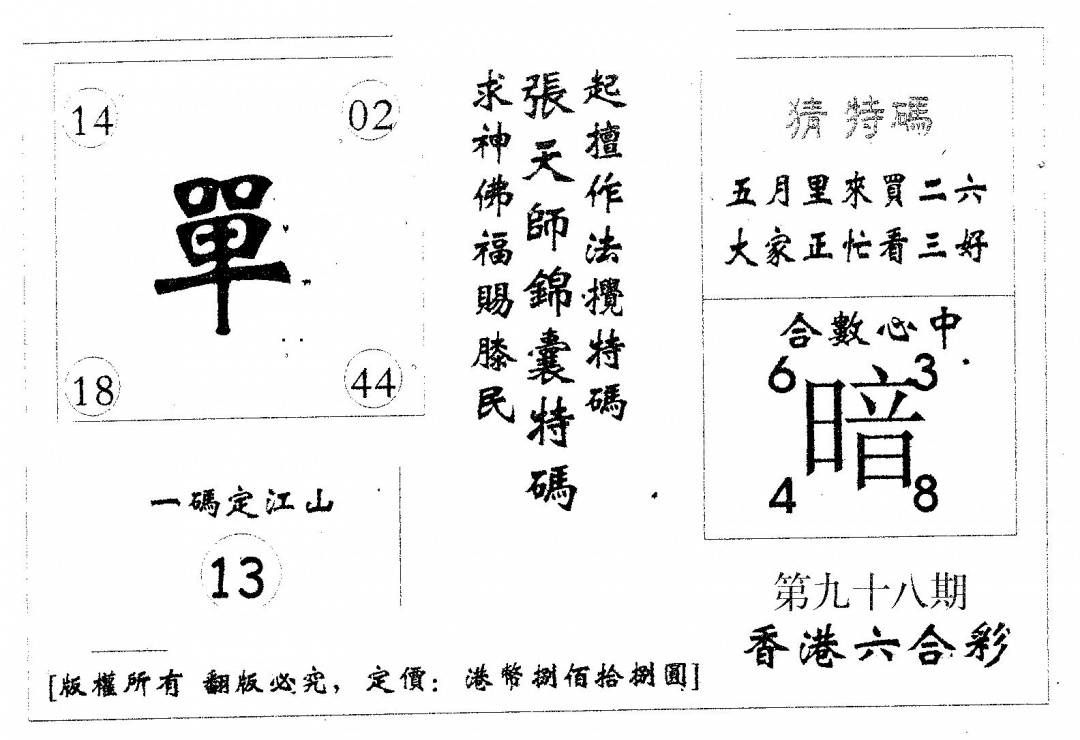 14
02
單
18
44
一碼定江山
13
起擅作法攪特碼
張天師錦囊特碼
求神佛福賜膝民
猜特碼
五月里來買二六
大家正忙看三好
合數心中
6
3
暗
4
8
第九十八期
香港六合彩
[版權所有 翻版必究, 定價: 港幣捌佰拾捌圓]